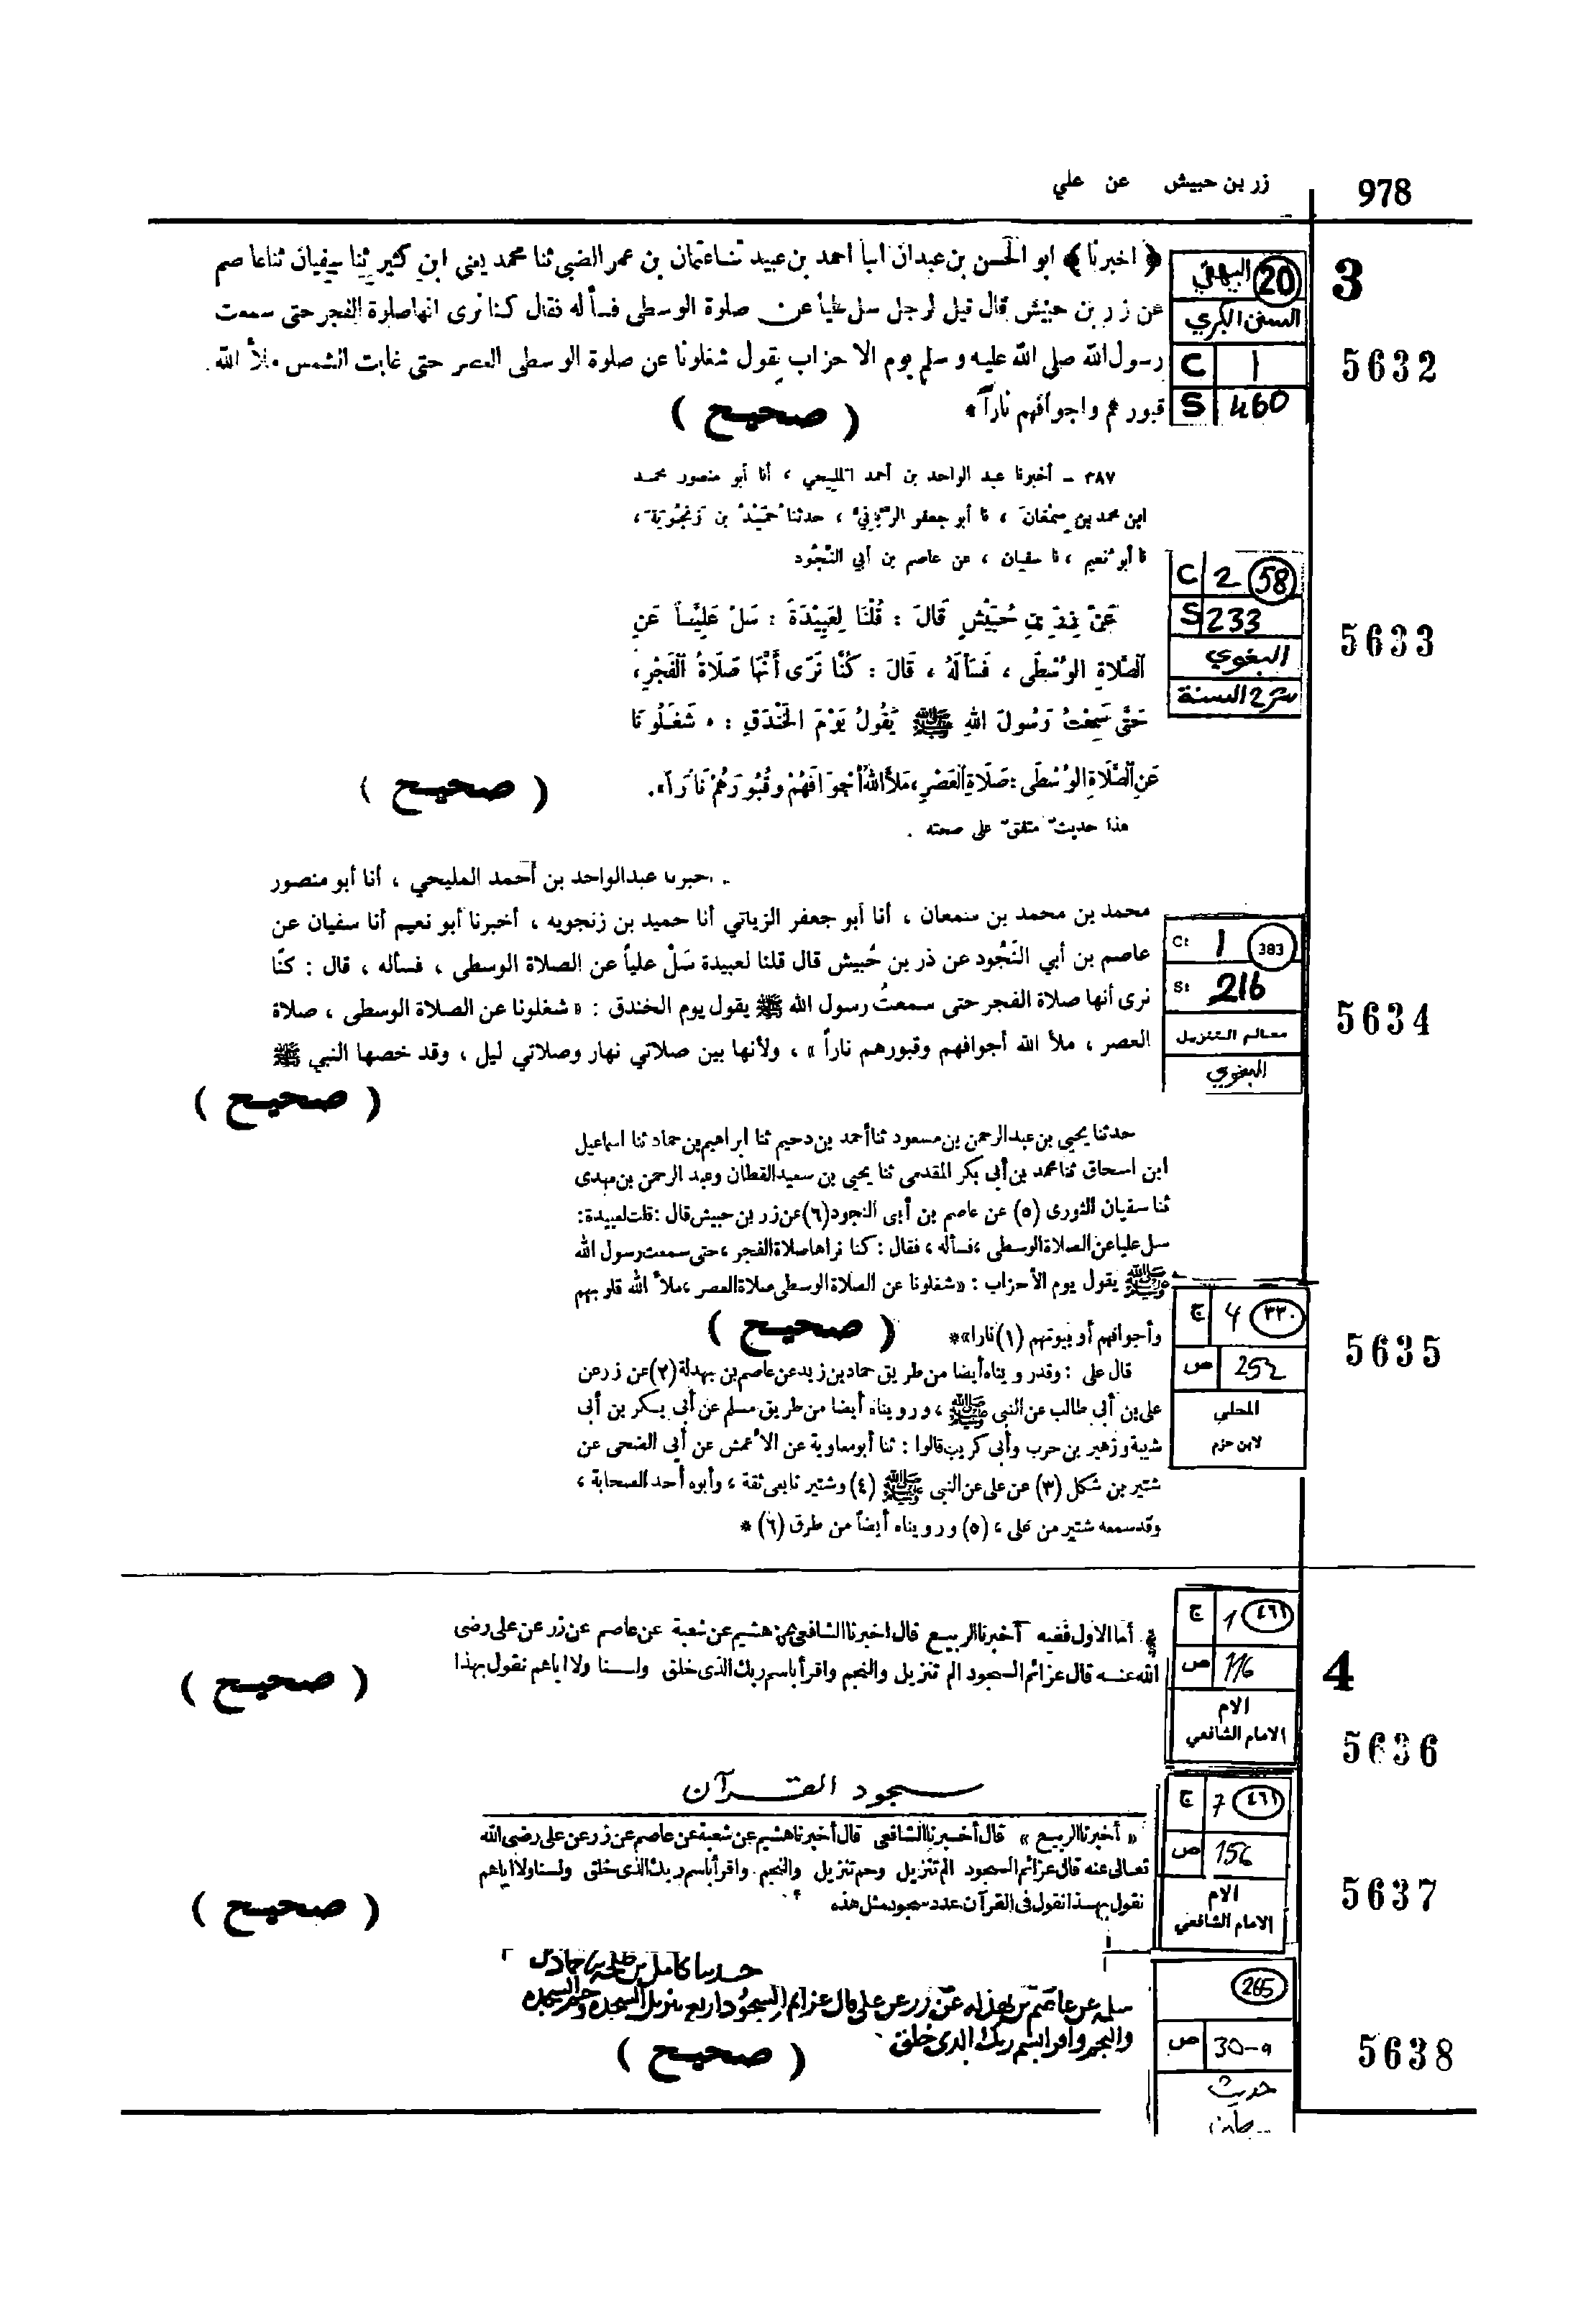 978
زر بن حبيش عن علي
3
5632
20 البيهقي
السنن الكبرى
C 1
S 460
﴿ اخبرنا ﴾ ابو الحسن بن عبدان انبأ احمد بن عبيد ثنا عثمان بن عمر الضبى ثنا محمد يعنى ابن كثير ثنا سفيان ثنا عاصم
عن زر بن حبيش قال قيل لرجل سل عليا عن صلوة الوسطى فسأله فقال كنا نرى انها صلوة الفجر حتى سمعت
رسول الله صلى الله عليه وسلم يوم الاحزاب يقول شغلونا عن صلوة الوسطى العصر حتى غابت الشمس ملأ الله
قبورهم واجوافهم ناراً *
( صحيح )
5633
C 2 58
S 233
البغوي
شرح السنة
٣٨٧ – أخبرنا عبد الواحد بن أحمد المليحي ، أنا أبو منصور محمد
ابن محمد بن سمعان ، نا أبو جعفر الرياني ، حدثنا حميد بن زنجوية ،
نا أبو نعيم ، نا سفيان ، عن عاصم بن أبي النجود
عَنْ زِرِّ بنِ حُبَيْشٍ قَالَ : قُلْنَا لِعَبِيْدَةَ : سَلْ عَلِيَّاً عَنِ
الصَّلَاةِ الوُسْطَى ، فَسَأَلَهُ ، قَالَ : كُنَّا نَرَى أَنَّهَا صَلَاةُ الْفَجْرِ ،
حَتَّى سَمِعْتُ رَسُولَ اللهِ ﷺ يَقُولُ يَوْمَ الخَنْدَقِ : « شَغَلُونَا
عَنِ الصَّلَاةِ الوُسْطَى : صَلَاةِ الْعَصْرِ ، مَلَأَ اللهُ أَجْوَافَهُمْ وَقُبُورَهُمْ نَاراً » .
( صحيح )
هذا حديث متفق على صحته .
5634
C: 1 383
S: 216
معالم التنزيل
البغوي
عبدالواحد بن أحمد المليحي ، أنا أبو منصور
محمد بن محمد بن سمعان ، أنا أبو جعفر الزياتي أنا حميد بن زنجويه ، أخبرنا أبو نعيم أنا سفيان عن
عاصم بن أبي النَجُود عن ذر بن حُبيش قال قلنا لعبيدة سَلْ علياً عن الصلاة الوسطى ، فسأله ، قال : كنّا
نرى أنها صلاة الفجر حتى سمعتُ رسول الله ﷺ يقول يوم الخندق : « شغلونا عن الصلاة الوسطى ، صلاة
العصر ، ملأ الله أجوافهم وقبورهم ناراً » ، ولأنها بين صلاتي نهار وصلاتي ليل ، وقد خصها النبي ﷺ
( صحيح )
5635
ج 4 ٣٣٠
ص 252
المحلى
لابن حزم
حدثنا يحيى بن عبد الرحمن بن مسعود ثنا أحمد بن دحيم ثنا ابراهيم بن حماد ثنا اسماعيل
ابن اسحاق ثنا محمد بن أبى بكر المقدمى ثنا يحيى بن سعيد القطان وعبد الرحمن بن مهدى
ثنا سفيان الثورى (٥) عن عاصم بن أبى النجود (٦) عن زر بن حبيش قال : قلت لعبيدة :
سل عليا عن الصلاة الوسطى ، فسأله ، فقال : كنا نراها صلاة الفجر ، حتى سمعت رسول الله
ﷺ يقول يوم الأحزاب : «شغلونا عن الصلاة الوسطى صلاة العصر ، ملأ الله قلوبهم
وأجوافهم أو بيوتهم (١) نارا» *
( صحيح )
قال على : وقد روينا أيضا من طريق حماد بن زيد عن عاصم بن بهدلة (٢) عن زر عن
على بن أبى طالب عن النبى ﷺ ، وروينا أيضا من طريق مسلم عن أبى بكر بن أبى
شيبة وزهير بن حرب وأبى كريب قالوا : ثنا أبو معاوية عن الأعمش عن أبى الضحى عن
شتير بن شكل (٣) عن على عن النبى ﷺ (٤) وشتير تابعى ثقة ، وأبوه أحد الصحابة ،
وقد سمعه شتير من على ، (٥) وروينا أيضاً من طرق (٦) *
4
5636
ج 1 ٤٦١
ص 116
الام
الامام الشافعي
أما الاول ففيه أخبرنا الربيع قال اخبرنا الشافعى عن هشيم عن شعبة عن عاصم عن زر عن على رضى
الله عنه قال عزائم السجود الم تنزيل والنجم واقرأ باسم ربك الذى خلق ولسنا ولا اياهم نقول بهذا
( صحيح )
5637
ج 7 ٤٦١
ص 156
الام
الامام الشافعي
سجود القرآن
« أخبرنا الربيع » قال أخبرنا الشافعى قال أخبرنا هشيم عن شعبة عن عاصم عن زر عن على رضى الله
تعالى عنه قال عزائم السجود الم تنزيل وحم تنزيل والنجم واقرأ باسم ربك الذى خلق ولسنا ولا اياهم
نقول بهذا نقول فى القرآن عدد سجود مثل هذه
( صحيح )
5638
265
ص 30-a
حديث
حدثنا كامل بن طلحة حماد بن
سلمه عن عاصم بن بهدله عن زر عن على قال عزائم السجود اربع تنزيل السجده وحم السجده
والنجم واقرا باسم ربك الذى خلق
( صحيح )